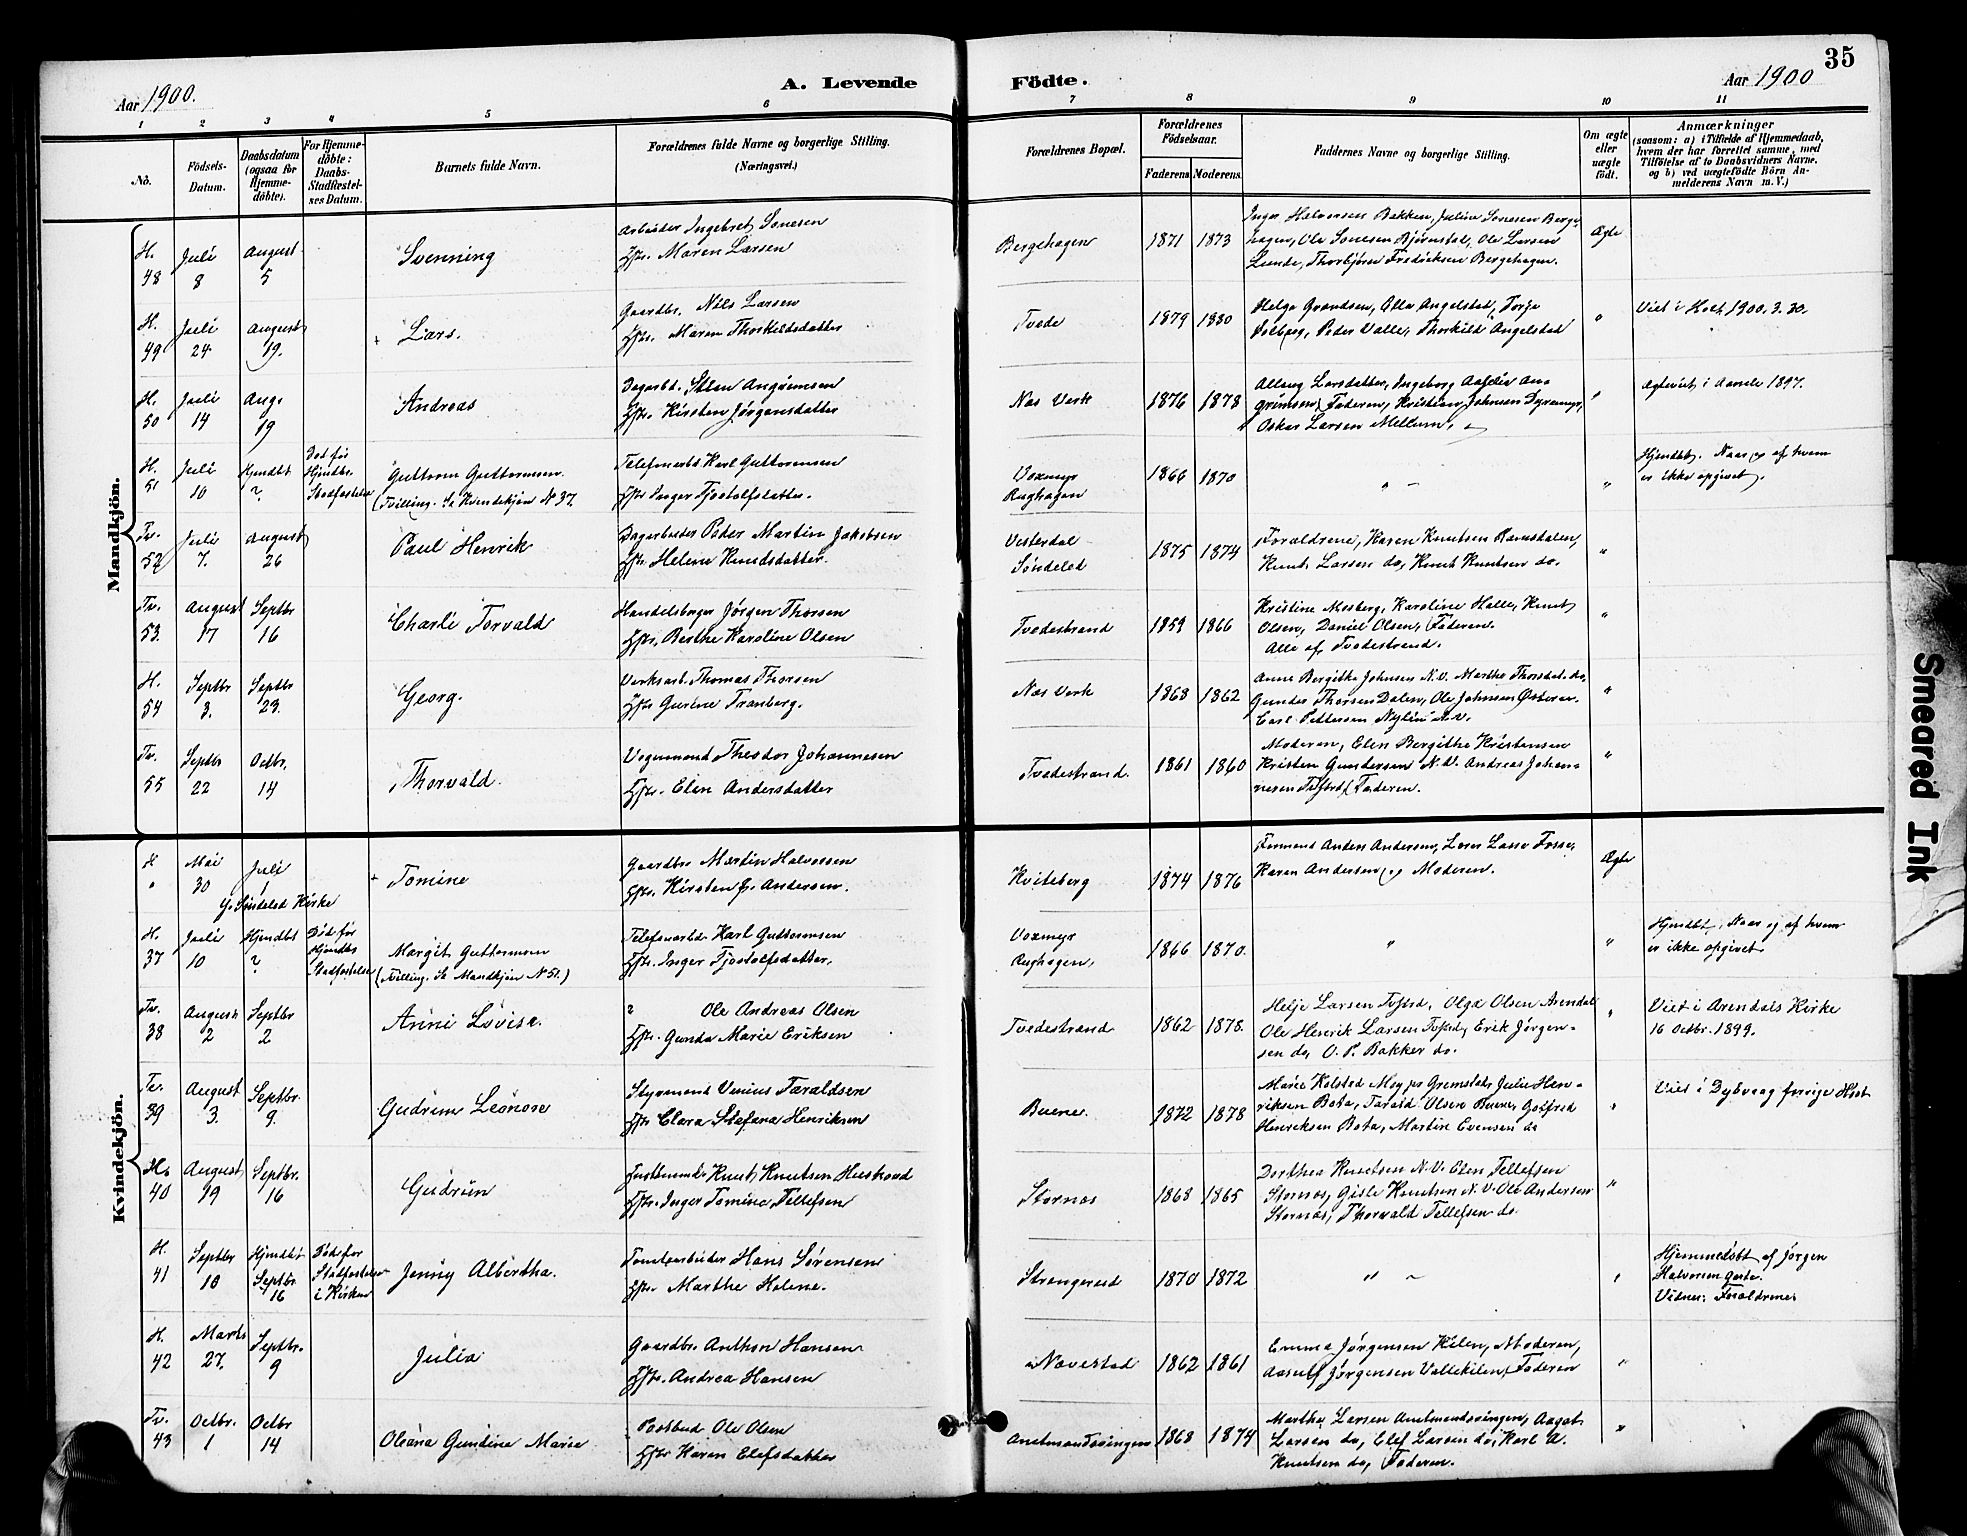 35
Aar 1900.
A. Levende
Födte.
Aar 1900
1 2 3 4 5 6 7 8 9 10 11
No.
Födsels-Datum.
Daabsdatum (ogsaa for Hjemmedöbte).
For Hjemmedöbte: Daabs-Stadfæstelses Datum.
Barnets fulde Navn.
Forældrenes fulde Navne og borgerlige Stilling. (Næringsvei.)
Forældrenes Bopæl.
Forældrenes Födselsaar.
Faderens. Moderens.
Faddernes Navne og borgerlige Stilling.
Om ægte eller uægte födt.
Anmærkninger
(saasom: a) i Tilfælde af Hjemmedaab, hvem der har forrettet samme, med Tilföielse af to Daabsvidners Navne, og b) ved uægtefödte Börn Anmelderens Navn m. V.)
Mandkjön.
H. 48 Juli 8 August 5 Svenning
Arbeider Ingebret Sonesen
Hstr. Maren Larsen
Bergehagen 1871 1873
Inger Halvorsen Bakken, Juline Sonesen Berge-
hagen, Ole Sonesen Bjørnstad, Ole Larsen
Lunde, Thorbjørn Fredriksen Bergehagen.
Ægte
H. 49 Juli 24 August 19. + Lars.
Gaardbr. Nils Larsen
Hstr. Maren Thorkildsdatter
Tvede 1879 1880
Helga Grændsen, Olla Angelstad, Torje
Solberg, Peder Valle, Thorkild Angelstad
" Viet i Holt 1900. 3. 30.
H. 50 Juli 14 Aug. 19 Andreas
Dagarbd. Steen Angrimsen
Hstr. Kirsten Jørgensdatter
Næs Værk 1876 1878
Aslaug Larsdatter, Ingeborg Aaselie An-
grimsen, Faderen, Kristian Johnsen Dyremyr,
Oskar Larsen Mellum.
" Ægteviet i Aamle 1897.
H. 51 Juli 10 Hjmdbt ? Død før Hjmdbs. Stadfæstelse
Guttorm Guttormsen.
(Tvilling. Se Kvindekjøn N 37.
Telefonarbd. Karl Guttormsen
Hstr. Inger Tjostolfsdatter.
Voxmyr
Rughagen 1866 1870
" -
" Hjmdbt. Naar og af hvem
er ikke opgivet.
Tv. 52 Juli 7. August 26 Paul Henrik
Dagarbeider Peder Martin Jakobsen
Hstr. Helene Knudsdatter.
Vesterdal
Søndeled 1875 1874
Forældrene, Karen Knutsen Ramsdalen,
Knut Larsen do, Knut Knutsen do.
"
Tv. 53. August 17 Septbr 16 Charli Torvald
Handelsborger Jørgen Thorsen
Hstr. Berthe Karoline Olsen
Tvedestrand 1859 1866
Kristine Mosberg, Karoline Halle, Knut
Olsen, Daniel Olsen, Faderen.
Alle af Tvedestrand.
"
H. 54 Septbr 3. Septbr 23. Georg.
Værksarb. Thomas Thorsen
Hstr Gurine Tranberg.
Næs Værk 1868 1862
Anne Bergithe Johnsen N.V. Marthe Thorsdat. do,
Gunder Thorsen Dalen, Ole Johnsen Østeraa.
Carl Pettersen Nylin N.V.
"
Tv. 55 Septbr 22 Octbr. 14 Thorvald.
Vognmand Theodor Johannesen
Hstr. Elen Andersdatter
Tvedestrand. 1861 1860
Moderen, Elen Bergithe Kristensen
Kristen Gundersen N.V. Andreas Johan-
nesen Tvfstrd, Faderen.
"
Kvindekjön.
H " Mai 30 Juli 1 + Tomine
i Søndeled Kirke
Gaardbr. Martin Halvorsen
Hstr. Kirsten f. Andersen.
Kviteberg 1874 1876
Formand Anders Andersen,
Karen Andersen og Moderen.
Ægte
H. 37 Juli 10 Hjmdbt ? Død før Hjmdbs Stadfæstelse
Margit Guttormsen
(Tvilling. Se Mandkjøn N 51.)
Telefonarbd. Karl Guttormsen
Hstr. Inger Tjostolfsdatter.
Voxmyr
Rughagen, 1866 1870.
"
" Hjmdbt, Naar og af hvem
er ikke opgivet.
Tv. 38 August 2 Septbr 2 Anni Lovise.
? Ole Andreas Olsen
Hstr. Gunda Marie Eriksen
Tvedestrand 1862 1878.
Helje Larsen Tvfstrd, Olga Olsen Arendal
Ole Henrik Larsen Tvfstrd, Erik Jørgen-
sen do, O. P. Bakker do.
" Viet i Arendals Kirke
16 Octbr. 1899.
Tv. 39 August 3. Septbr. 9. Gudrun Leonore
Styrmand Venius Taraldsen
Hstr Clara Stefana Henriksen
Buene. 1872 1878
Marie Kolstad Moy pr Grimstad, Julie Hen-
riksen Bota, Tarald Olsen Buene, Gotfred
Henriksen Bota, Martin Evensen do
" Viet i Dybvaag forrige Høst
H. 40 August 19 Septbr. 16 Gudrun
Justermd. Knut Knutsen Hustrand
Hstr. Inger Tomine Tellefsen
Stornæs 1868 1865
Dorthea Knutsen N.V. Elen Tellefsen
Stornæs, Gisle Knutsen N.V. Ole Andersen
Stornæs, Thorvald Tellefsen do.
"
H. 41 Septbr 10 Hjmdbt Septbr. 16 Død før Stadfæstelse i Kirken
Jenny Albertha.
Tomtearbeider Hans Sørensen
Hstr. Marthe Helene.
Strengereid 1870 1872
" -
" Hjemmedøbt af Jørgen
Halvorsen Goste.
Vidner: Forældrene
H. 42 Marts 27. Septbr. 9 Julia
Gaardbr. Anthon Hansen
Hstr. Andrea Hansen
Navestad 1862 1861
Emma Jørgensen Kilen, Moderen,
Aasulf Jørgensen Vallekilen, Faderen
"
Tv. 43 Octbr. 1 Octbr 14 Oleana Gundine Marie
Postbud Ole Olsen
Hstr Karen Elefsdatter
Amtmandssvingen 1868 1874
Marthe Larsen Amtmandssvingen, Aagot
Larsen do, Elef Larsen do, Karl A.
Knutsen do, Faderen.
"
Smeared Ink